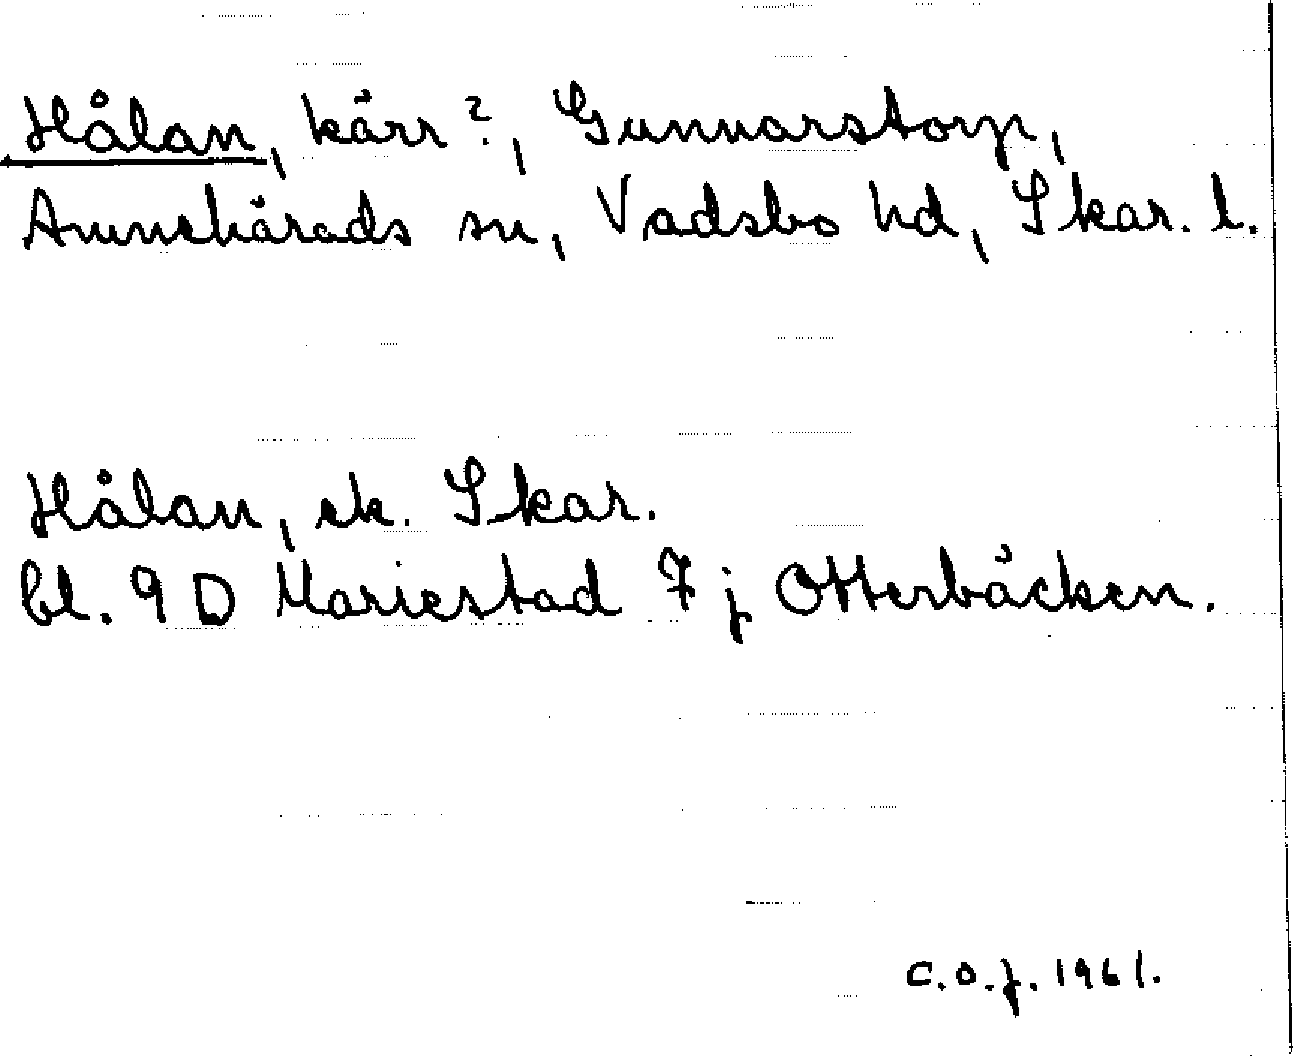 Hålan, kärr?, Gunnarstorp,
Amnehärads sn, Vadsbo hd, Skar. l.
Hålan, ek. Skar.
bl. 9 D Mariestad 7 j Otterbäcken.
C.O.J. 1961.